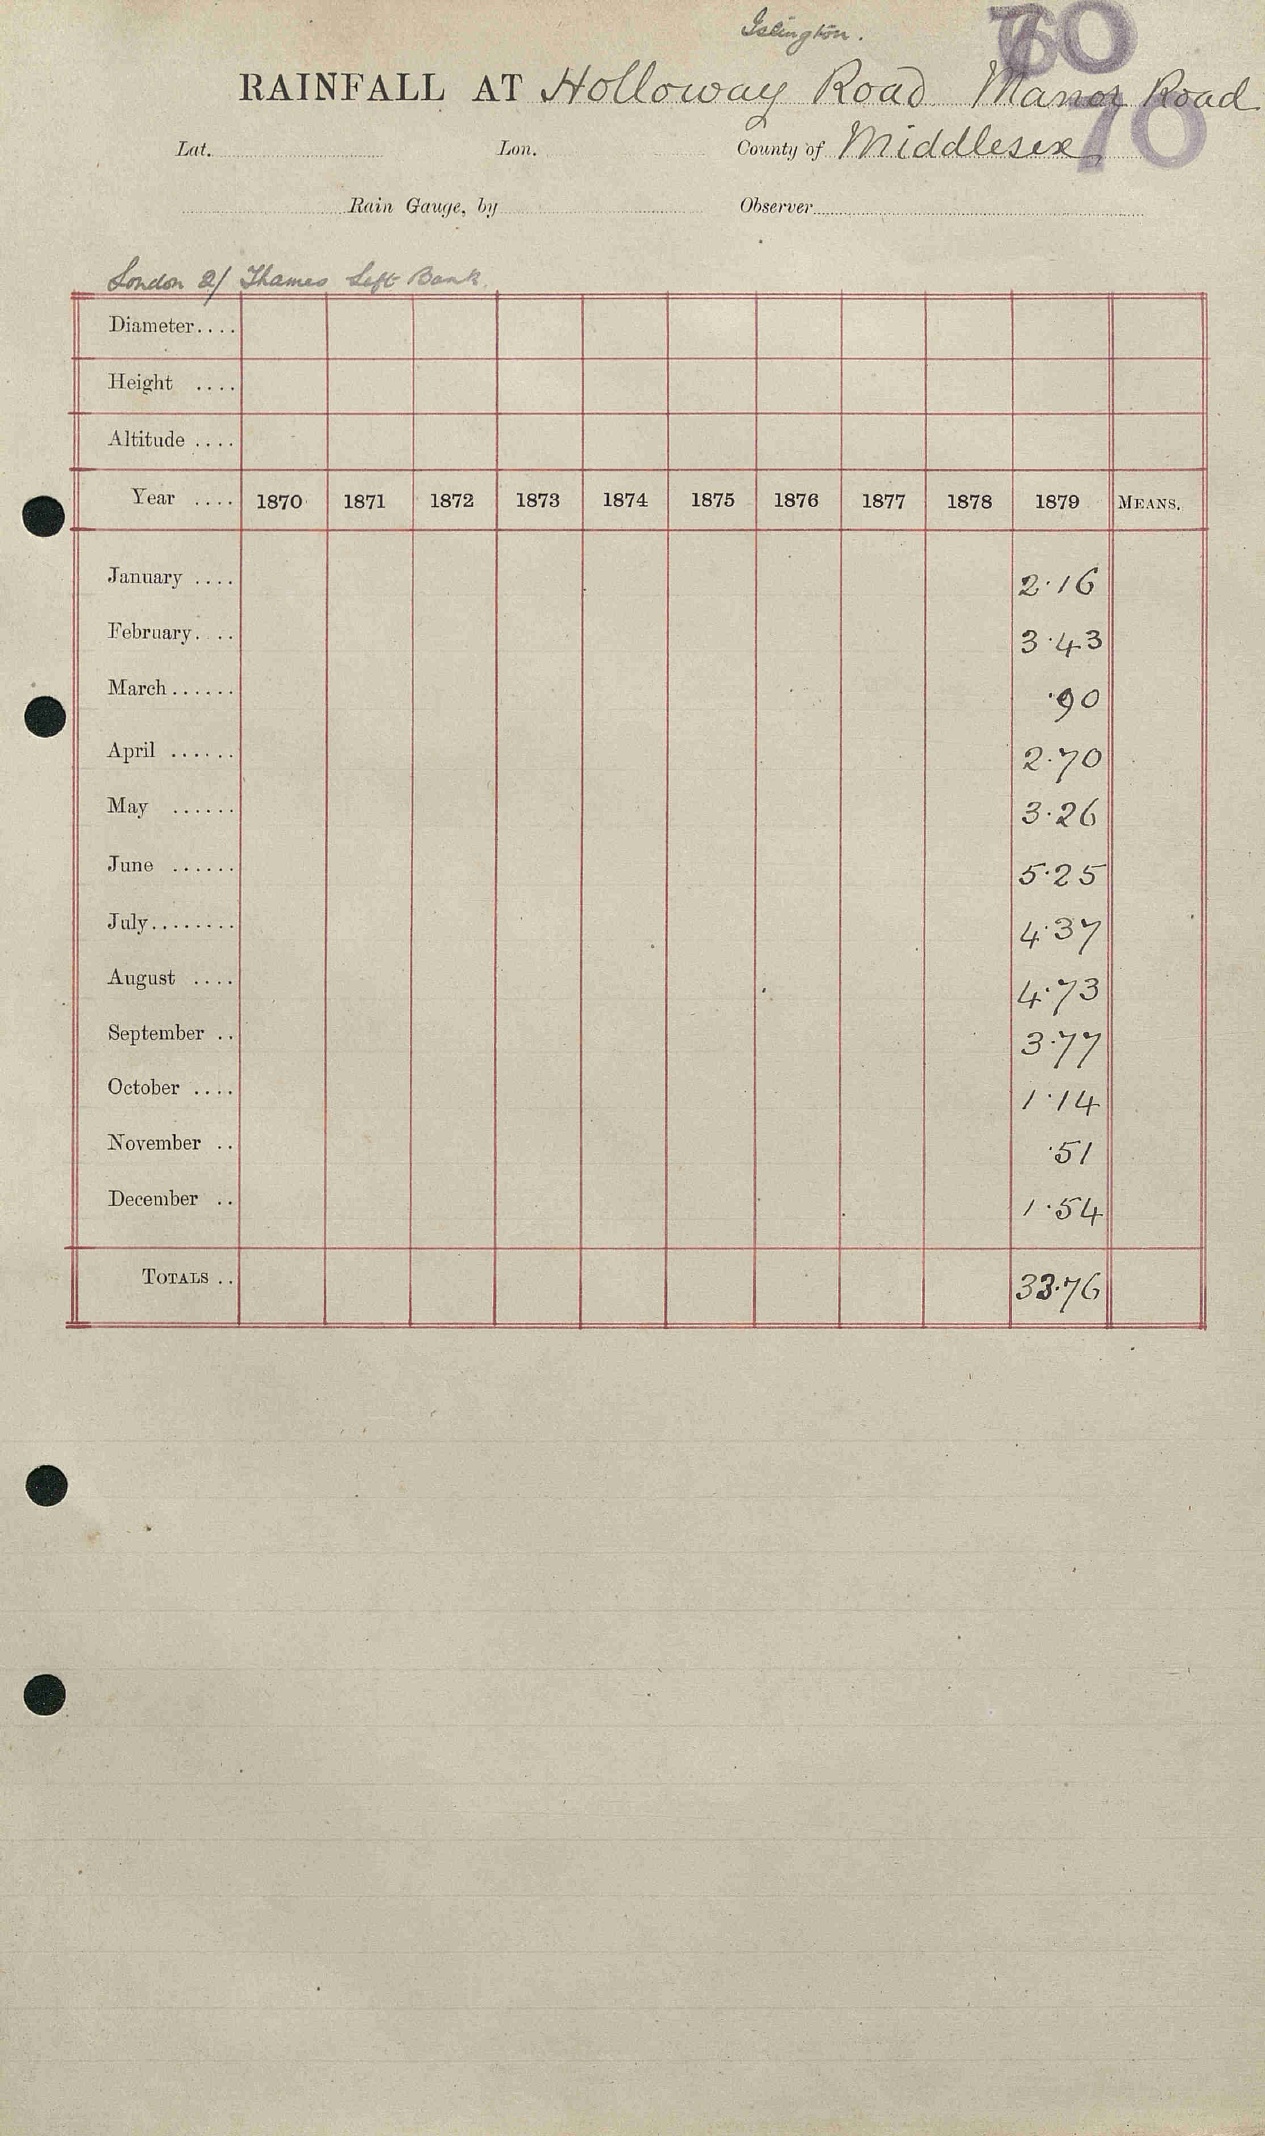 Islington.
RAINFALL AT Holloway Road Manor Road
70
Lat. Lon. County of Middlesex
Rain Gauge, by Observer
London 2/ Thames Left Bank
Diameter....
Height ....
Altitude ....
Year .... 1870 1871 1872 1873 1874 1875 1876 1877 1878 1879 MEANS.
January .... 2·16
February. .. 3·43
March...... ·90
April ...... 2·70
May ...... 3·26
June ...... 5·25
July........ 4·37
August .... 4·73
September .. 3·77
October .... 1·14
November .. ·51
December .. 1·54
TOTALS .. 33·76